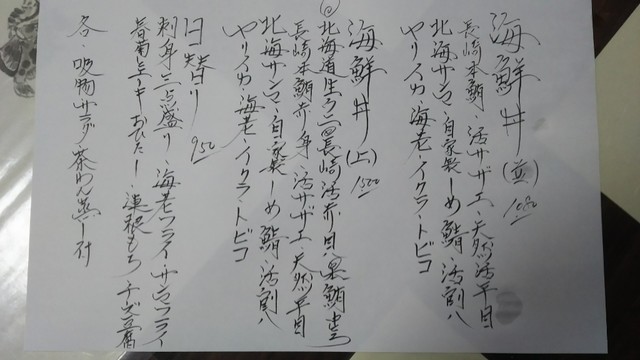 海鮮丼(並) 1080
長崎本鮪、活サザエ、天然活平目
北海サンマ、自家製〆鯖、活間八
ヤリイカ、海老、イクラ、トビコ
海鮮丼(上) 1500
北海道生うに 長崎活赤目黒鮪
長崎本鮪赤身、活サザエ、天然平目
北海サンマ、自家製しめ鯖、活間八
ヤリイカ、海老、イクラ、トビコ
日替り 950
刺身三点盛り、海老フライ、サンマフライ
春菊とエノキおひたし、蓮根もち チーズ豆腐
各、吸物サラダ、茶わん蒸し付